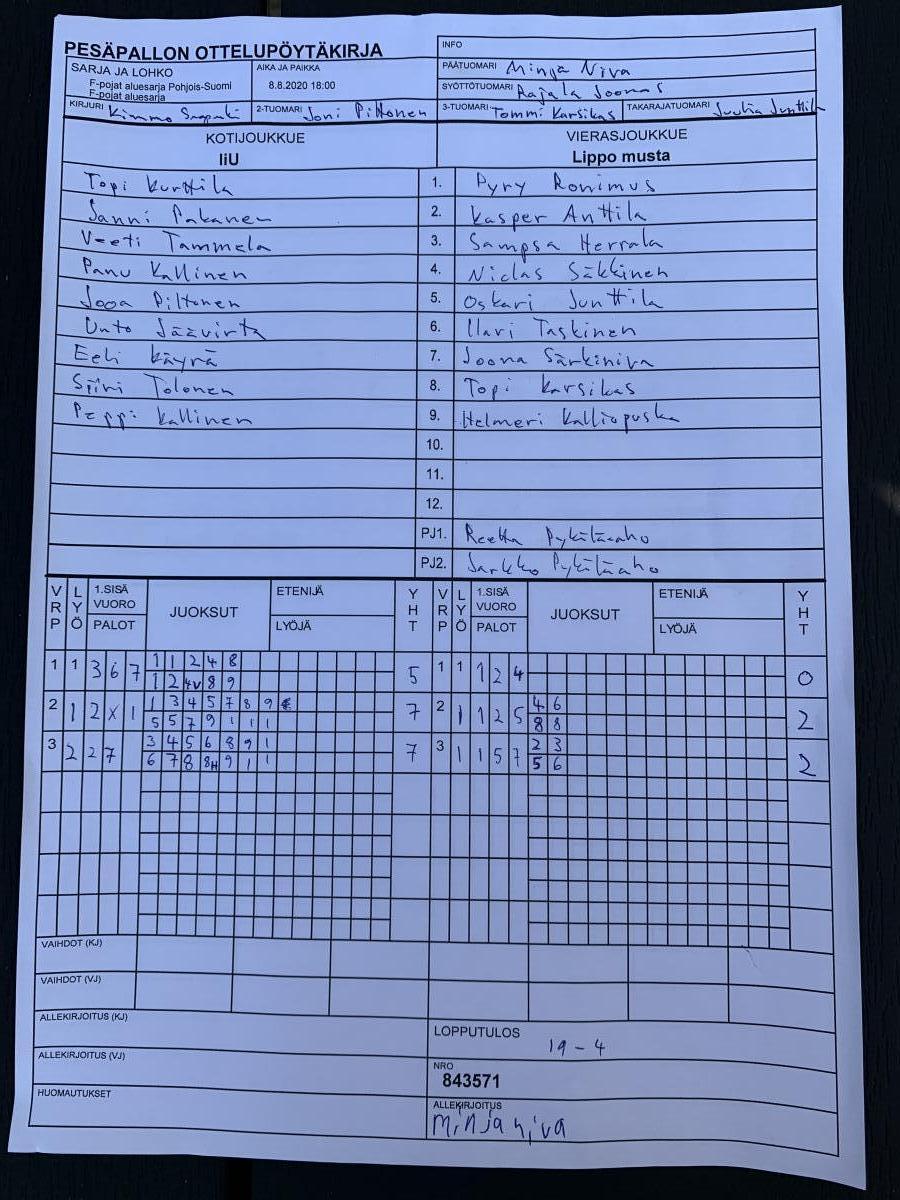 PESÄPALLON OTTELUPÖYTÄKIRJA
INFO
SARJA JA LOHKO
F-pojat aluesarja Pohjois-Suomi
F-pojat aluesarja
AIKA JA PAIKKA
8.8.2020 18:00
PÄÄTUOMARI Minja Niva
SYÖTTÖTUOMARI Rajala Joonas
KIRJURI Kimmo
2-TUOMARI Joni Piltonen
3-TUOMARI Tommi Karsikas
TAKARAJATUOMARI Juulia Junttila
KOTIJOUKKUE
IiU
VIERASJOUKKUE
Lippo musta
Topi Kurttila 1. Pyry Ronimus
Sanni Pakanen 2. Kasper Anttila
Veeti Tammela 3. Sampsa Herrala
Panu Kallinen 4. Niclas Säkkinen
Jooa Piltonen 5. Oskari Junttila
Unto Jäävirta 6. Ilari Taskinen
Eeli Käyrä 7. Joona Särkiniva
Siiri Tolonen 8. Topi Karsikas
Peppi Kallinen 9. Helmeri Kalliopuska
10.
11.
12.
PJ1. Reetta Pykäläaho
PJ2. Jarkko Pykäläaho
VRP LYÖ 1.SISÄ VUORO PALOT JUOKSUT ETENIJÄ LYÖJÄ YHT VRP LYÖ 1.SISÄ VUORO PALOT JUOKSUT ETENIJÄ LYÖJÄ YHT
1 1 3 6 7 1 1 2 4 8 5 1 1 1 2 4 0
1 2 4V 8 9
2 1 2 X 1 1 3 4 5 7 8 9 7 2 1 1 2 5 4 6 2
5 5 7 9 1 1 1 8 8
3 2 2 7 3 4 5 6 8 9 1 7 3 1 1 5 7 2 3 2
6 7 8 8H 9 1 1 5 6
VAIHDOT (KJ)
VAIHDOT (VJ)
ALLEKIRJOITUS (KJ)
LOPPUTULOS
19 - 4
ALLEKIRJOITUS (VJ)
NRO
843571
HUOMAUTUKSET
ALLEKIRJOITUS
Minja Niva